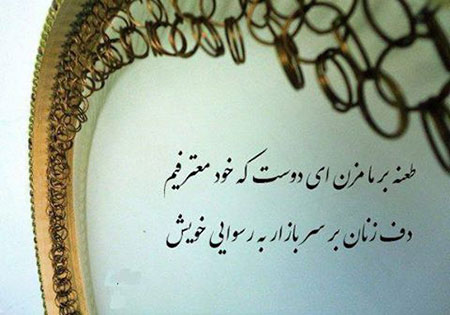 طعنه بر ما مزن ای دوست که خود معترفیم
دف زنان بر سر بازار به رسوایی خویش